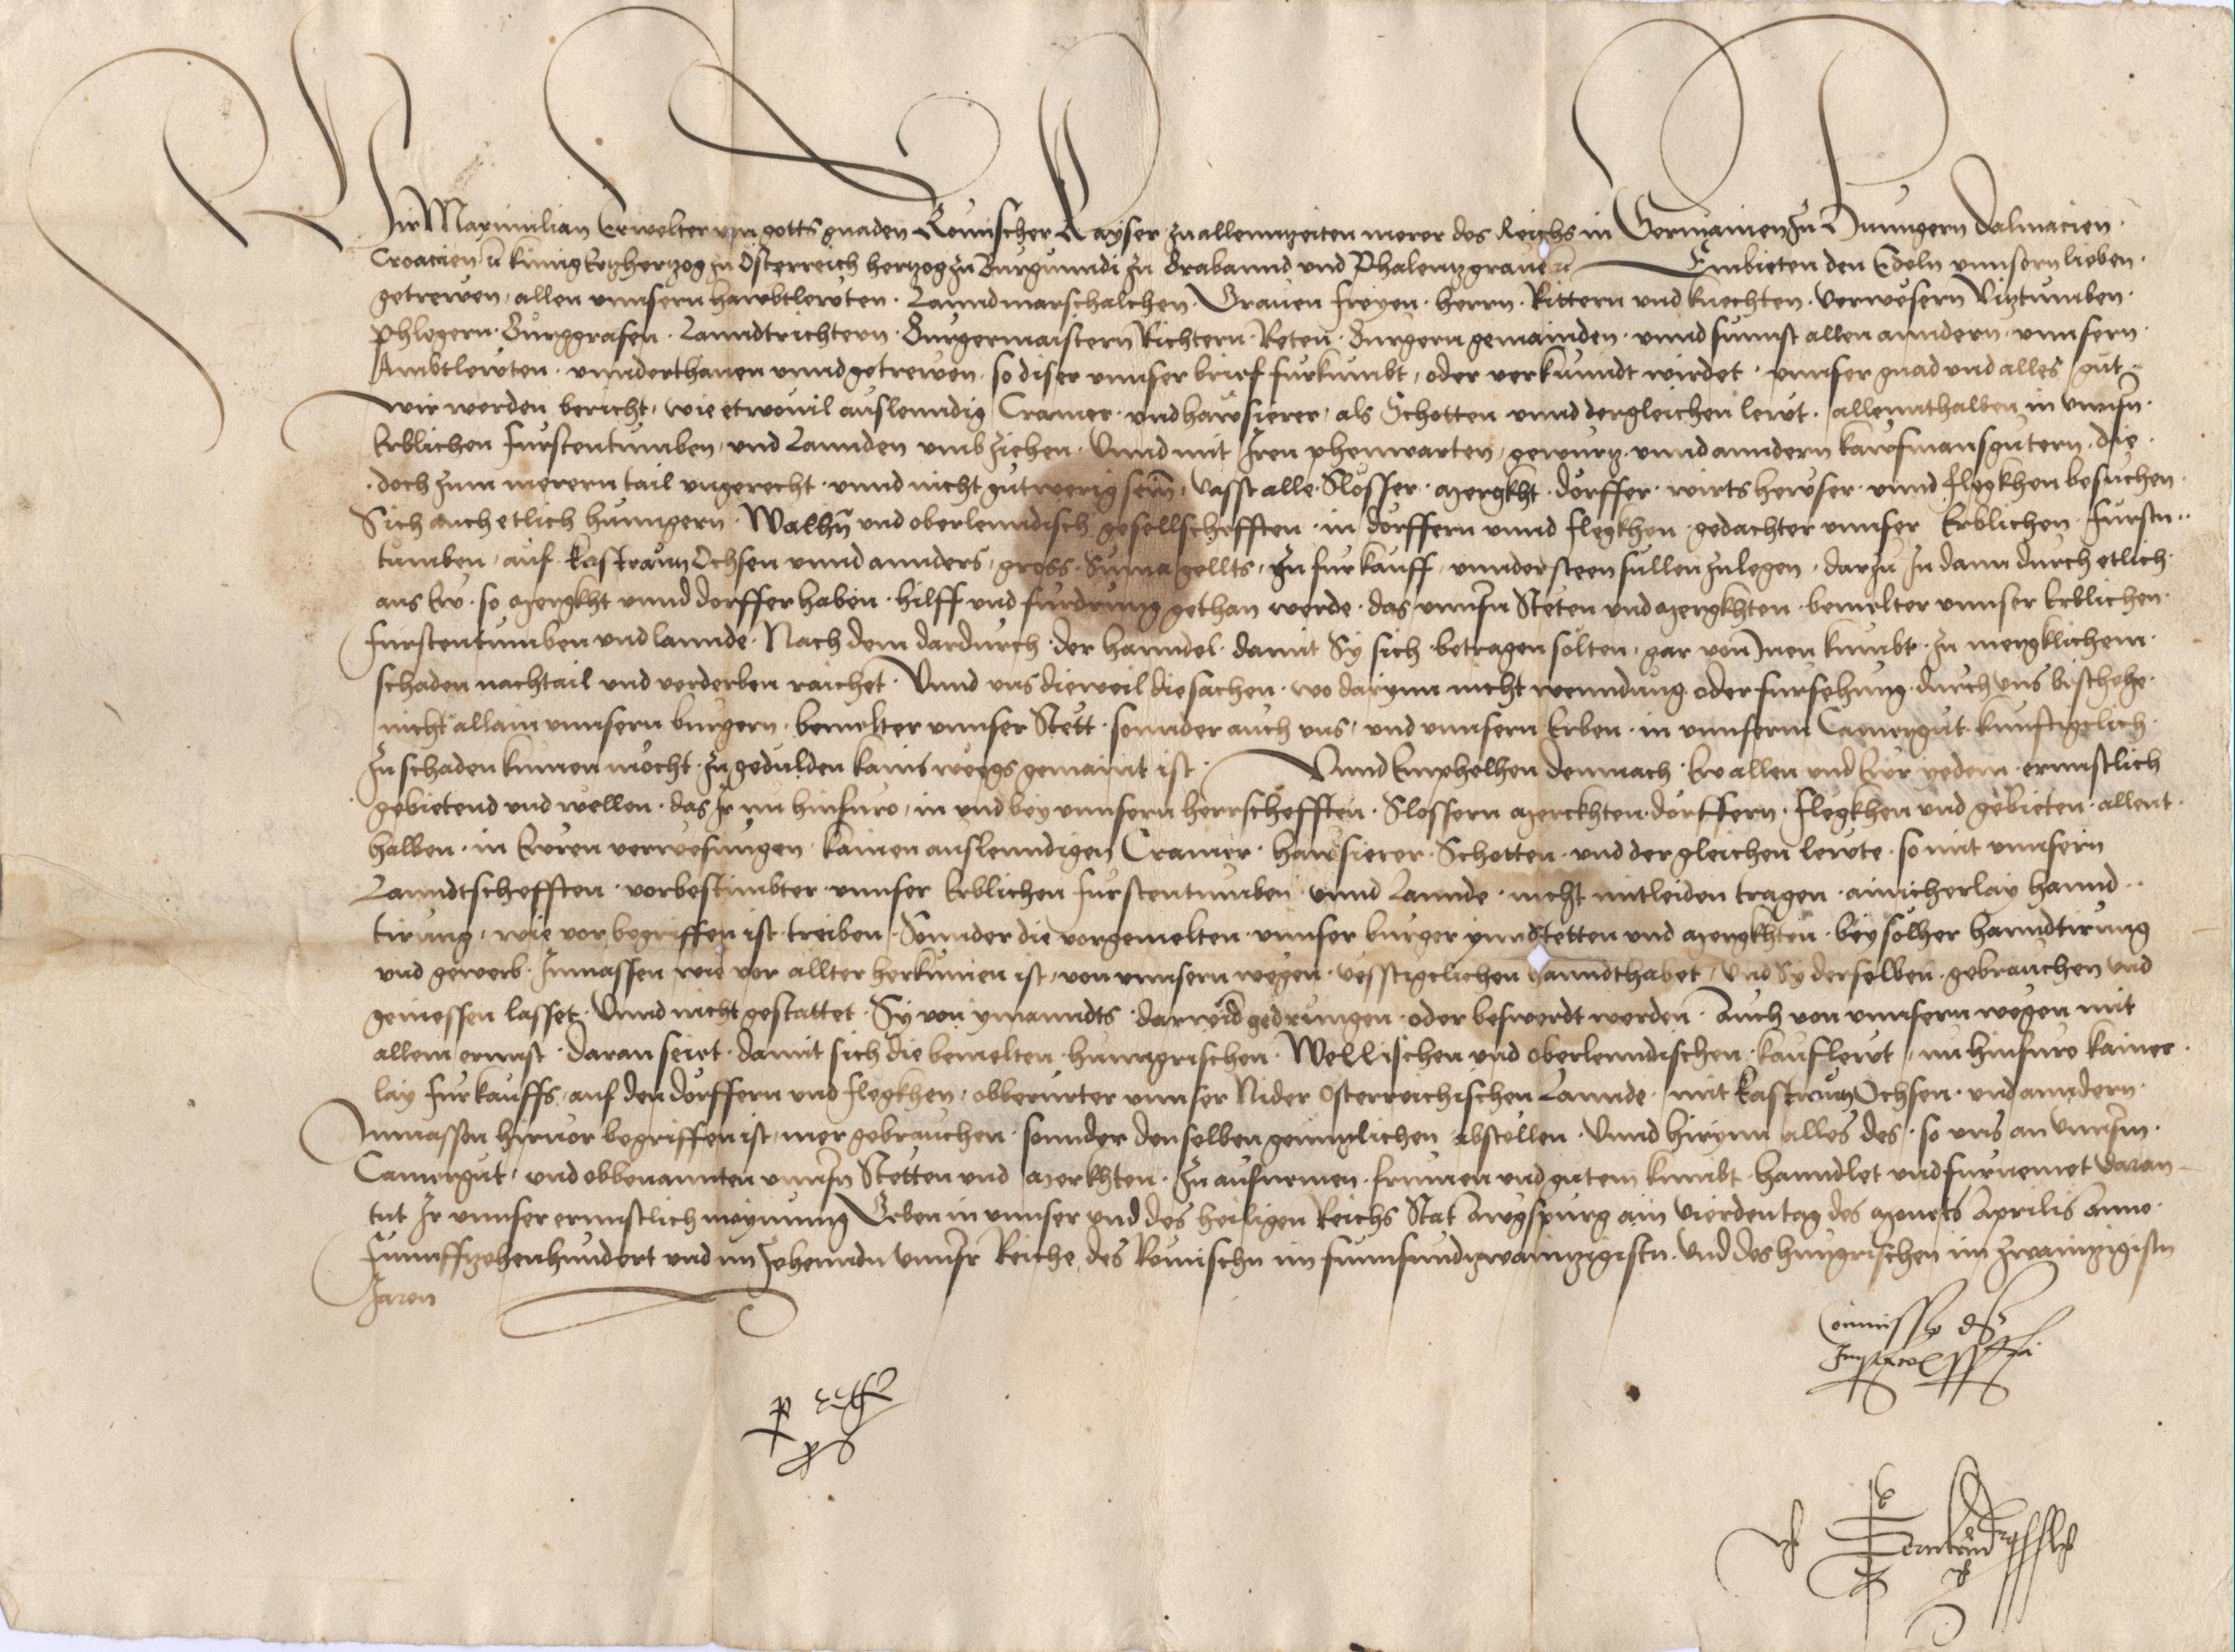 Wir Maximilian Erwelter von gotts gnaden Romischer Kayser zuallenntzeiten merer des Reichs in Germanien zu Hunngern Dalmacien
Croacien etc kunig Ertzhertzog zu Osterreich hertzog zu Burgunndi zu Brabannd und Phalentzgraue etc Embieten den Edeln unnsern lieben
getrewen, allen unnsern Hawbtlewten. Lanndmarschalchen. Grauen freyen. herrn. Rittern und knechten. Verwesern Vitztumben
phlegern. Burggrafen. Lanndtrichtern. Burgermaistern Richtern. Reten. Burgern gemainden. unnd sunnst allen anndern. unnsern
Ambtlewten. unnderthanen unnd getrewen. so diser unnser brief furkumbt, oder verkunndt wirdet. unnser gnad und alles gut.
Wir werden bericht, wie etwovil auslenndig Cramer. und hawsierer, als Schotten unnd dergleichen lewt. allennthalben in unnsn
Erblichen furstentumben, und Lannden umbziehen. Unnd mit Iren phenwarten, gewurtz unnd anndern kaufmansgutern. die
doch zum merern tail ungerecht. unnd nicht gutwerig sein, vasst alle Slosser. Mergkht. dorffer. wirtshewser. unnd flegkhen besuchen
Sich auch etlich hunngern. Walhn und oberlenndisch gesellschefften. in dorffern unnd flegkhen gedachter unnser Erblichen fursten
tumben, auf kastraun Ochsen unnd annders, gross Suma gellts, zu furkauff, unndersteen sullen zulegen, darzu In dann durch etlich
aus Ew. so Mergkht unnd dorffer haben. hilff und furdrung gethan werde. das unnsn Steten und Mergkhten bemelter unnser Erblichen
furstentumben und lannde. Nach dem dardurch der hanndel. damit Sy sich betragen solten, gar von Inen kumbt. zu mergklichem
schaden nachtail und verderben raichet. Unnd uns dieweil die sachen. wo darynn nicht wenndung oder fursehung durch uns beschehe
nicht allain unnsern burgern bemelter unnser Stett. sonnder auch uns, und unnsern Erben. in unnserm Camergut kunfftigclich
zu schaden kumen mocht. zu gedulden kains weegs gemaint ist. Unnd Emphelhen demnach Ew allen und Ewr yedem. ernnstlich
gebietend und wellen. das Ir nu hinfuro, in und bey unnsern herrschefften. Slossern Merckhten. dorffern. flegkhen und gebieten. allent
halben. in Ewren verwesungen kainen auslenndigen Cramer. hawsierer. Schotten. und der gleichen lewte. so mit unnsern
Lanndtschefften vorbestimbter unnser Erblichen furstentumben unnd Lannde. nicht mitleiden tragen. ainicherlay hannd
tirung, wie vor begriffen ist treiben. Sonnder die vorgemelten unnser burger ynn Stetten und Mergkhten. bey solher hanndtirung
und gewerb. Inmassen wie vor allter herkumen ist, von unnsern wegen. vesstigclichen hanndthabet, Und Sy derselben. gebrauchen und
geniessen lasset. Unnd nicht gestattet. Sy von ymanndts darwider gedrungen. oder beswerdt werden. Auch von unnsern wegen mit
allem ernnst. daran seiet. damit sich die bemelten hunngrischen. Wellischen und oberlenndischen kauflewt, nu hinfuro kainer
lay furkauffs, auf den dorffern und flegkhen, obberurter unnser Nider Osterreichischen Lannde. mit kastraun Ochsen. und anndern
Inmassen hieuor begriffen ist, mer gebrauchen. sonnder denselben genntzlichen abstellen. Unnd hirynn alles des. so uns an Unnserm
Camergut, und obbenannten unnsn Stetten und Merkhten. zu aufnemen frumen und gutem kumbt. hanndlet und furnemet daran
tut Ir unnser ernnstlich maynung Geben in unnser und des heiligen Reichs Stat Augspurg am vierden tag des Monets Aprilis Anno
funnffzehenhundert und im Zehennden unnsr Reiche des Romischn im funfundtzwaintzigistn. und des hungrischen im Zwaintzigistn
Jaren
Commissio dni
Imperatoris ppria
p